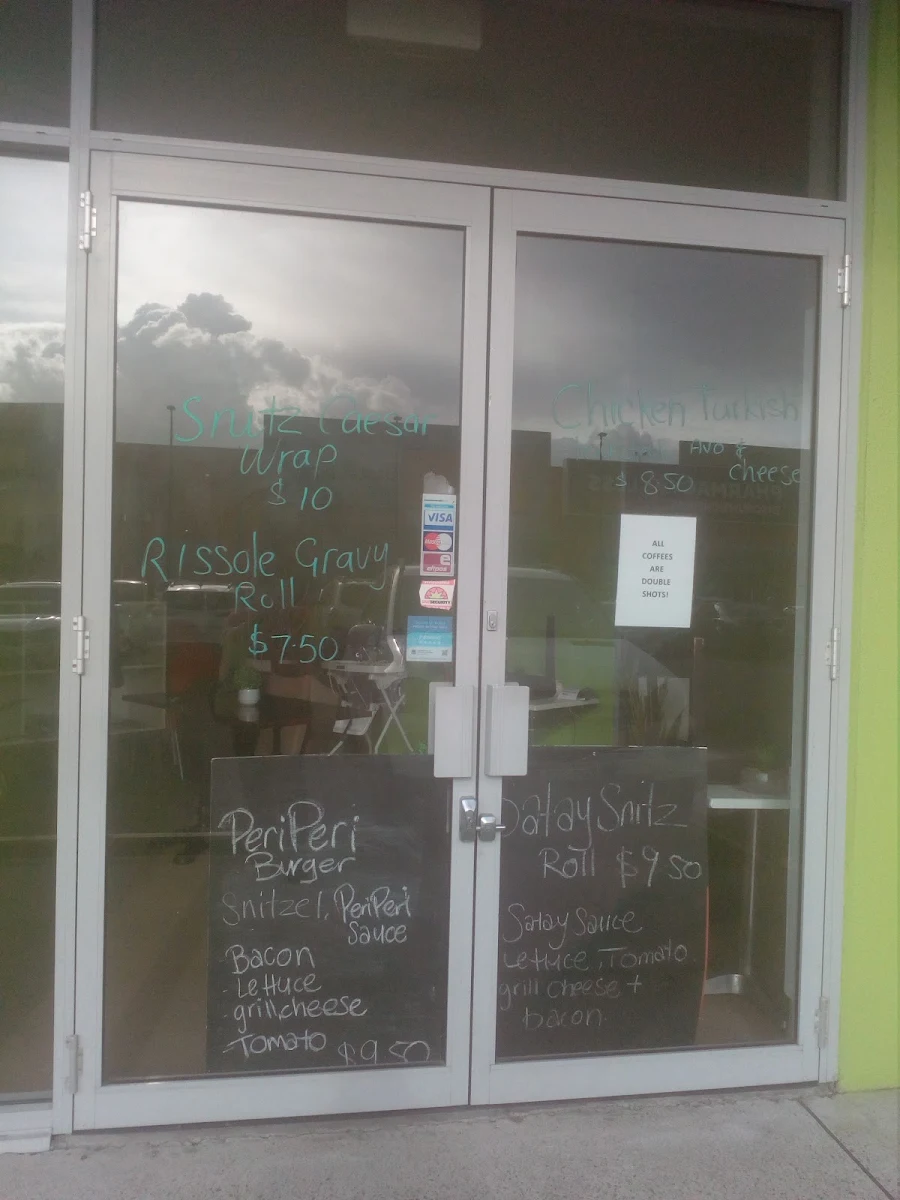 Snitz Caesar
Wrap
$10
Rissole Gravy
Roll
$7.50
Chicken Turkish
AVO &
cheese
$8.50
VISA
ALL
COFFEES
ARE
DOUBLE
SHOTS!
PeriPeri
Burger
Snitzel, PeriPeri
Sauce
Bacon
- Lettuce
- grill cheese
- Tomato
$9.50
Satay Snitz
Roll $9.50
Satay Sauce
Lettuce, Tomato
grill cheese +
bacon